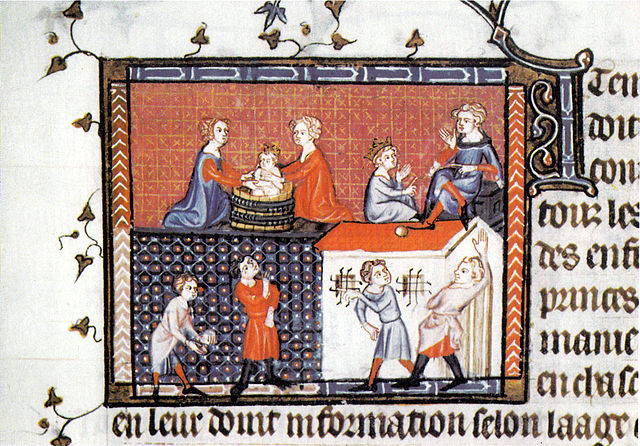 Iten
doit
touz les
des enf
princes
manie
en chasc
en leur doint information selon laage